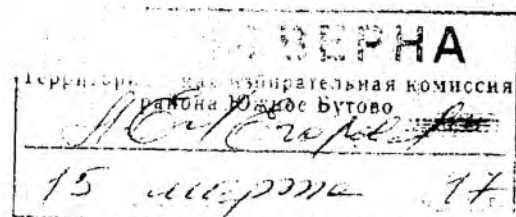 ВЕРНА
Территориальная избирательная комиссия
района Южное Бутово
15 марта 17